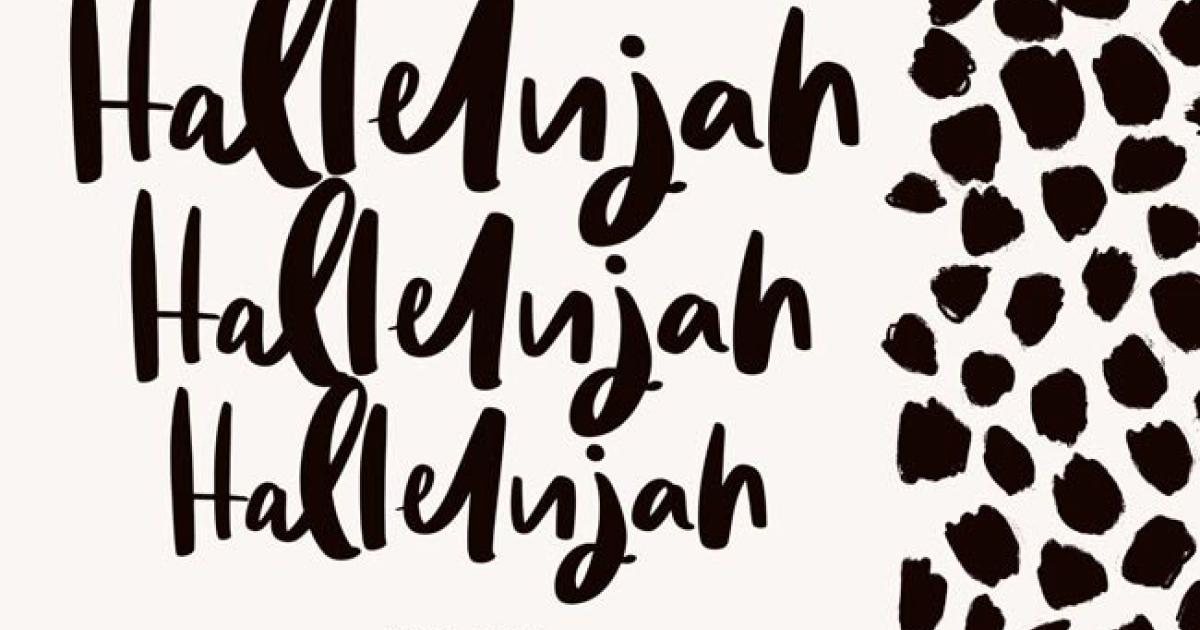 Hallelujah
Hallelujah
Hallelujah